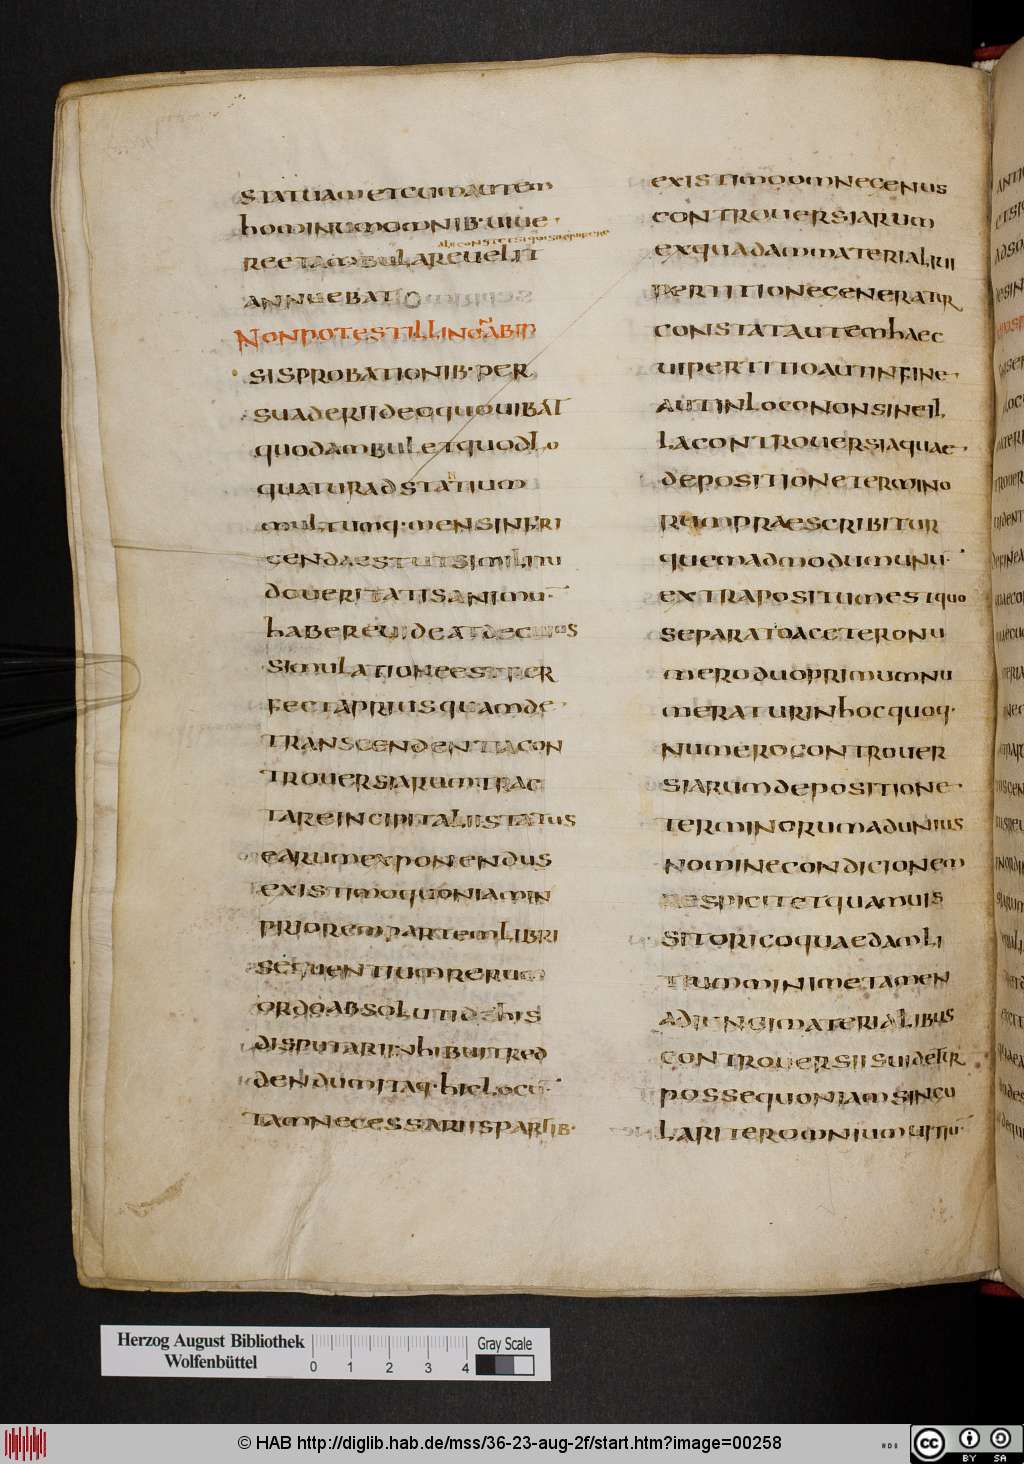 STATUAMETCUMAUTEM
hOMINUMOMNIB·UIUE·
RECTAMBULAREUELIT
NONPOTESTILLI
SISPROBATIONIB·PER
SUADERIIDEOQUOUIBAT
QUODAMBULETQUODLO
QUATURADSTATIUM
MULTUMQ·MENSINFRI
GENDAESTUTSIMILITU
DOUERITATISANIMU·
SIMULATIONEESTPER
FECTAPRIUSQUAMDE·
TRANSCENDENTIACON
TROUERSIARUMTRAC
TAREINCIPITALIISTATUS
EARUMEXPONENDUS
EXISTIMOQUONIAMIN
PRIOREMPARTEMLIBRI
SEQUENTIUMRERUM
ORDOABSOLUTIDEHIS
DISPUTARIINhIBUITRED
DENDUMITAQ·hICLOCU·
TAMNECESSARIISPARTIB·
EXISTIMOOMNEGENUS
CONTROUERSIARUM
EXQUADAMMATERIALIUI
PERTITIONEGENERATUR
CONSTATAUTEMhAEC
UIPERTITIOAUTINFINE·
AUTINLOCONONSINEIL
LACONTROUERSIAQUAE·
DEPOSITIONETERMINO
RUMPRAESCRIBITUR
QUEMADMODUMUNU·
EXTRAPOSITUMESTQUO
SEPARATOACETERONU
MERODUOPRIMUMNU
MERATURINhOCQUOQ·
NUMEROCONTROUER
SIARUMDEPOSITIONE·
TERMINORUMADUNIUS
NOMINECONDICIONEM
RESPICITETQUAMUIS
SITORICOQUAEDAMLI
TIUMMINIMETAMEN
ADIUNGIMATERIALIBUS
CONTROUERSIISUIDETUR
POSSEQUONIAMSINGU
LARITEROMNIUMUITIU·
Herzog August Bibliothek
Wolfenbüttel
0 1 2 3 4
Gray Scale
© HAB http://diglib.hab.de/mss/36-23-aug-2f/start.htm?image=00258
cc BY SA